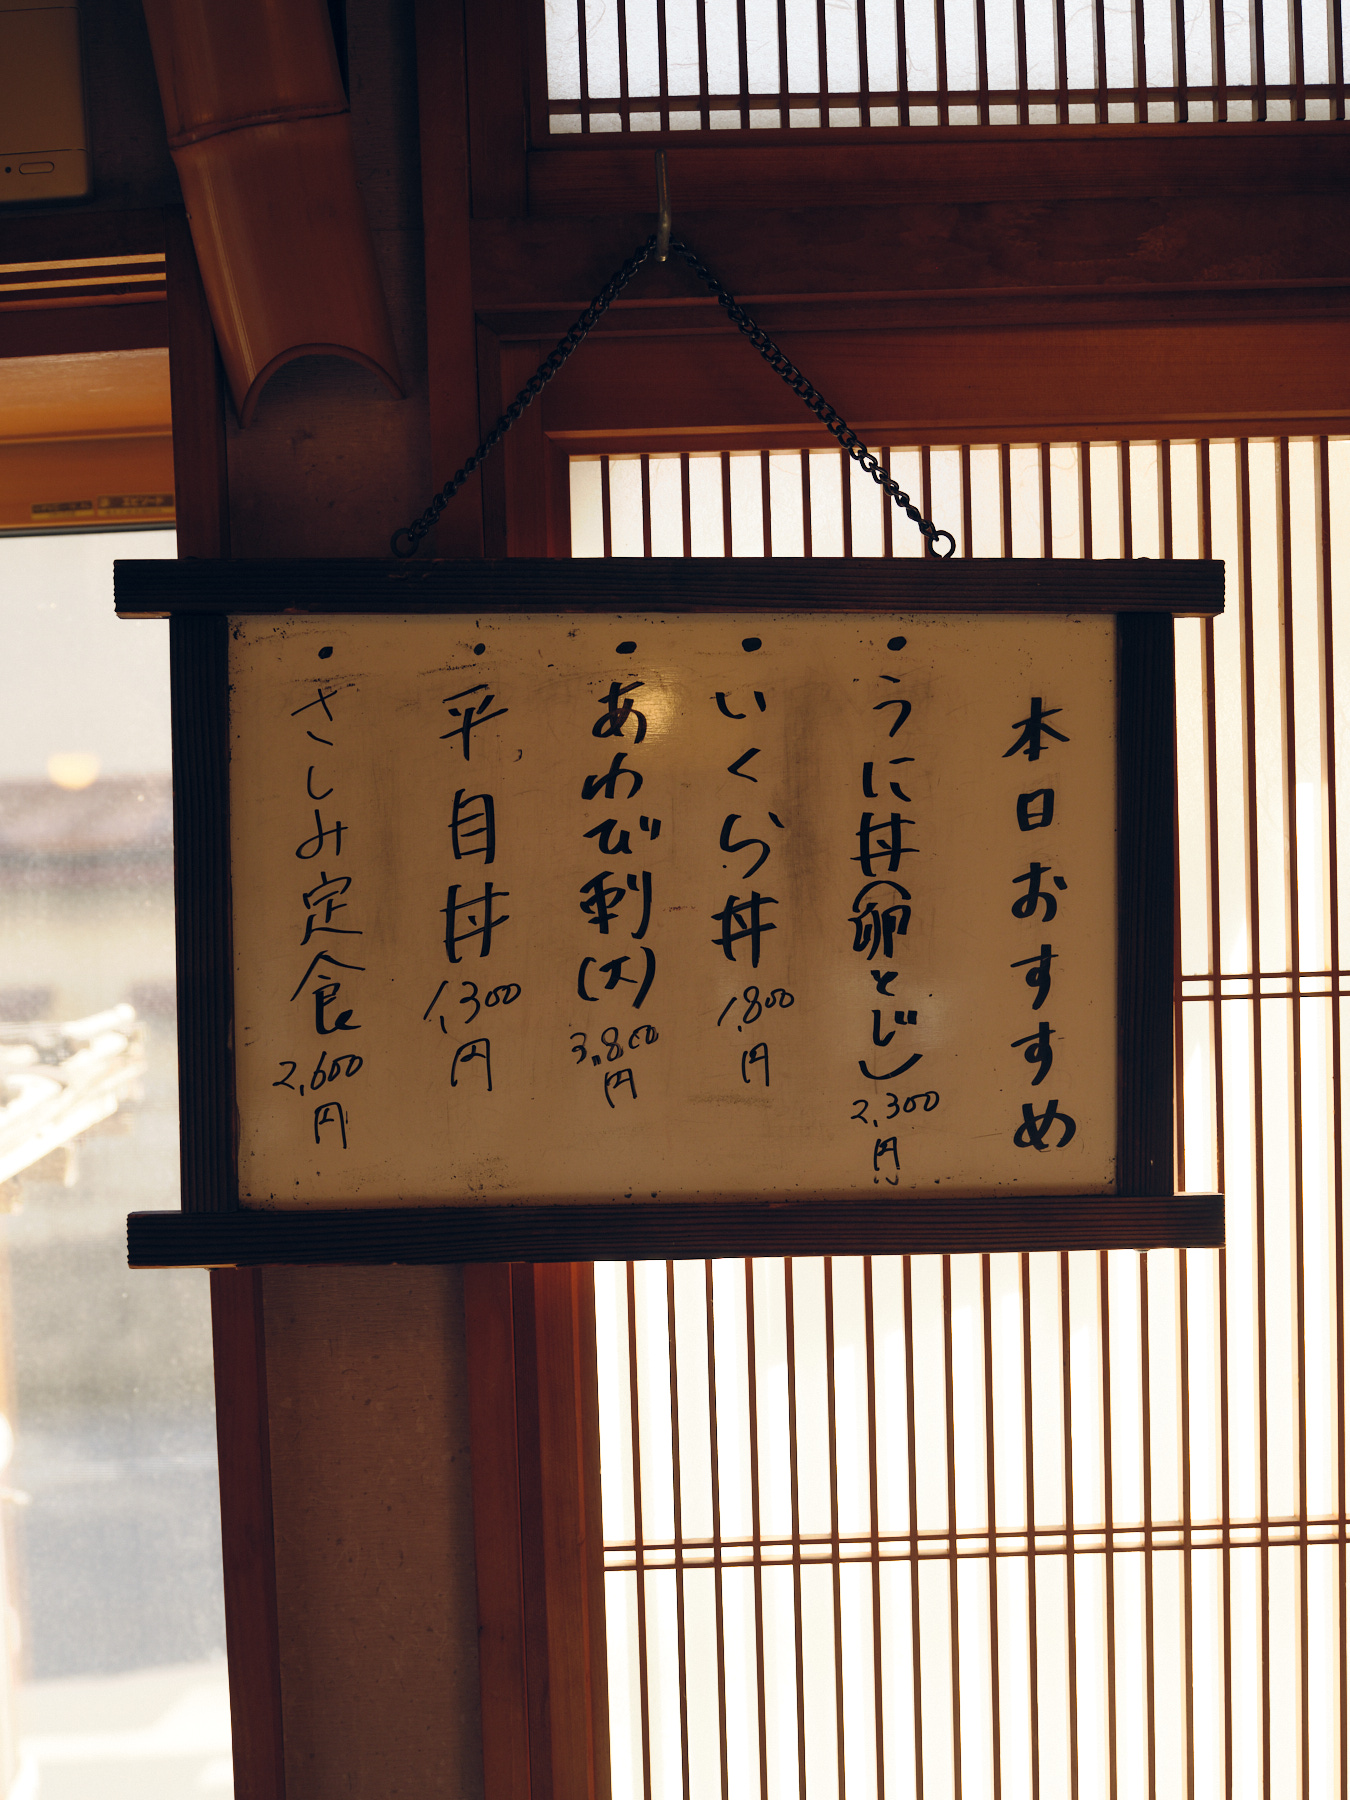 本日おすすめ
・うに丼(卵とじ) 2,300円
・いくら丼 1,800円
・あわび刺(大) 3,800円
・平自丼 1,300円
・さしみ定食 2,600円